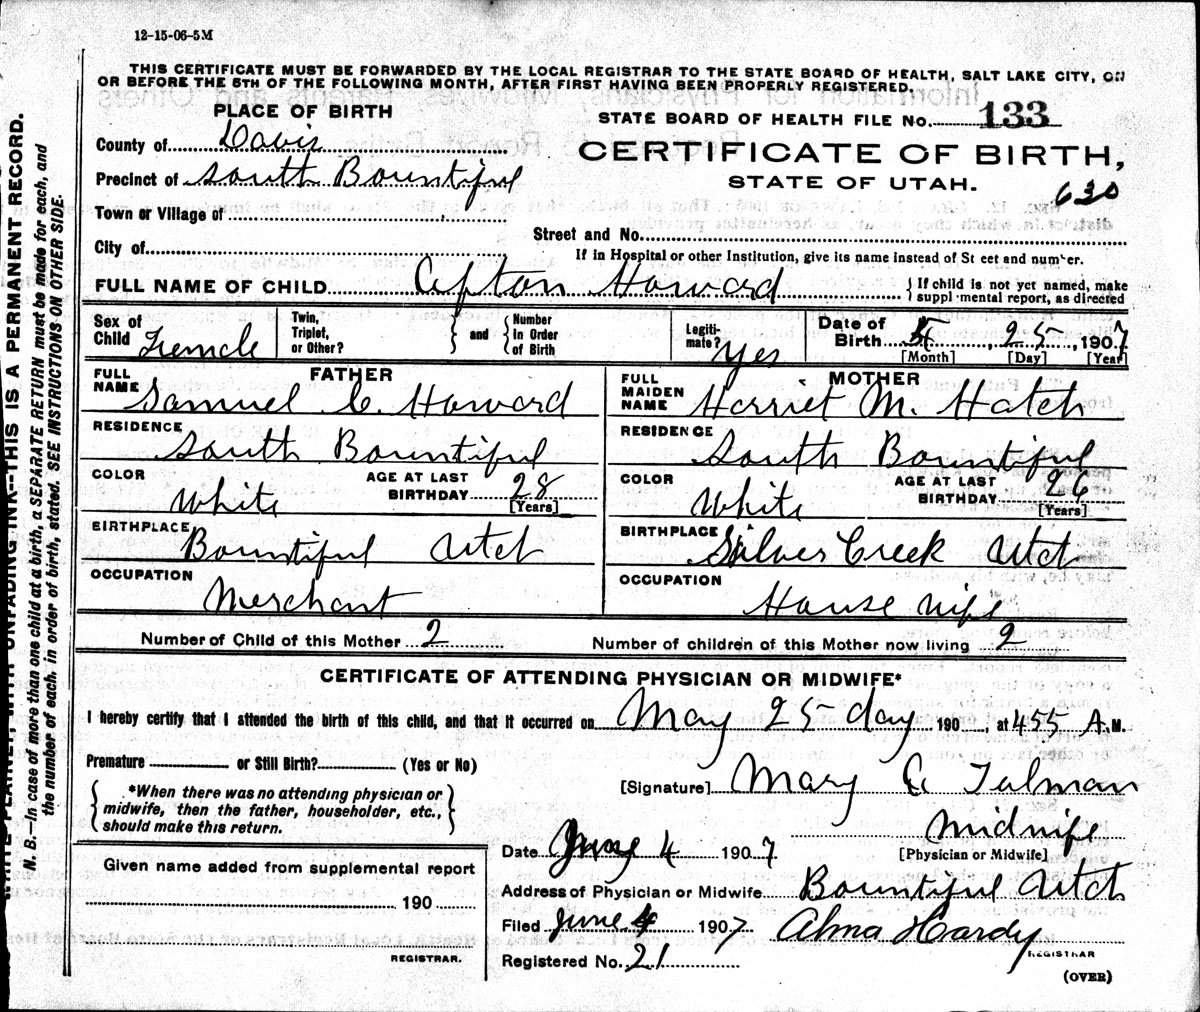 12-15-06-5M
THIS CERTIFICATE MUST BE FORWARDED BY THE LOCAL REGISTRAR TO THE STATE BOARD OF HEALTH, SALT LAKE CITY, ON
OR BEFORE THE 5TH OF THE FOLLOWING MONTH, AFTER FIRST HAVING BEEN PROPERLY REGISTERED.
PLACE OF BIRTH
STATE BOARD OF HEALTH FILE No. 133
County of Davis
CERTIFICATE OF BIRTH,
Precinct of South Bountiful
STATE OF UTAH.
630
Town or Village of
Street and No.
City of
If in Hospital or other Institution, give its name instead of St eet and number.
FULL NAME OF CHILD Afton Howard
If child is not yet named, make
suppl mental report, as directed
Sex of Child Female
Twin, Triplet, or Other?
and
Number In Order of Birth
Legiti-mate? Yes
Date of Birth 5, 25, 1907
[Month] [Day] [Year]
FATHER
FULL NAME Samuel C. Howard
RESIDENCE South Bountiful
COLOR White
AGE AT LAST BIRTHDAY 28
[Years]
BIRTHPLACE Bountiful Utah
OCCUPATION Merchant
MOTHER
FULL MAIDEN NAME Harriet M. Hatch
RESIDENCE South Bountiful
COLOR White
AGE AT LAST BIRTHDAY 26
[Years]
BIRTHPLACE Silver Creek Utah
OCCUPATION House wife
Number of Child of this Mother 2
Number of children of this Mother now living 2
CERTIFICATE OF ATTENDING PHYSICIAN OR MIDWIFE*
I hereby certify that I attended the birth of this child, and that it occurred on May 25 day 190 , at 455 A.M.
Premature or Still Birth? (Yes or No)
[Signature] Mary E Tolman
*When there was no attending physician or
midwife, then the father, householder, etc.,
should make this return.
Midwife
[Physician or Midwife]
Date June 4 1907
Given name added from supplemental report
190
REGISTRAR.
Address of Physician or Midwife Bountiful Utah
Filed June 4 1907 Alma Hardy
REGISTRAR
Registered No. 21
(OVER)
N. B.—In case of more than one child at a birth, a SEPARATE RETURN must be made for each, and
the number of each, in order of birth, stated. SEE INSTRUCTIONS ON OTHER SIDE.
WRITE PLAINLY, WITH UNFADING INK--THIS IS A PERMANENT RECORD.